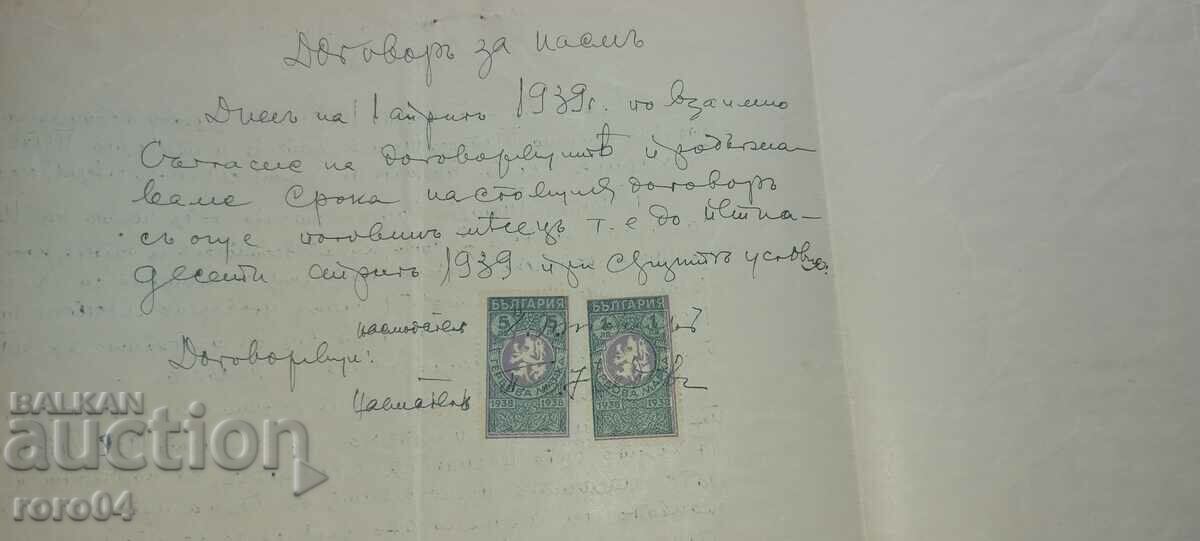 Договоръ за наемъ
Днесъ на 1 априлъ 1939 г. по взаимно
съгласие на договорящитѣ продължа-
ваме срока настоящия договоръ
съ още половинъ мѣсецъ т. е до петна-
десети априлъ 1939 при сѫщитѣ условия.
наемодателя
Договорящи:
наемателя
БЪЛГАРИЯ
5 5
ГЕРБОВА МАРКА
1938 1938
БЪЛГАРИЯ
1 1
ГЕРБОВА МАРКА
1938 1938
BALKAN
auction
roro04